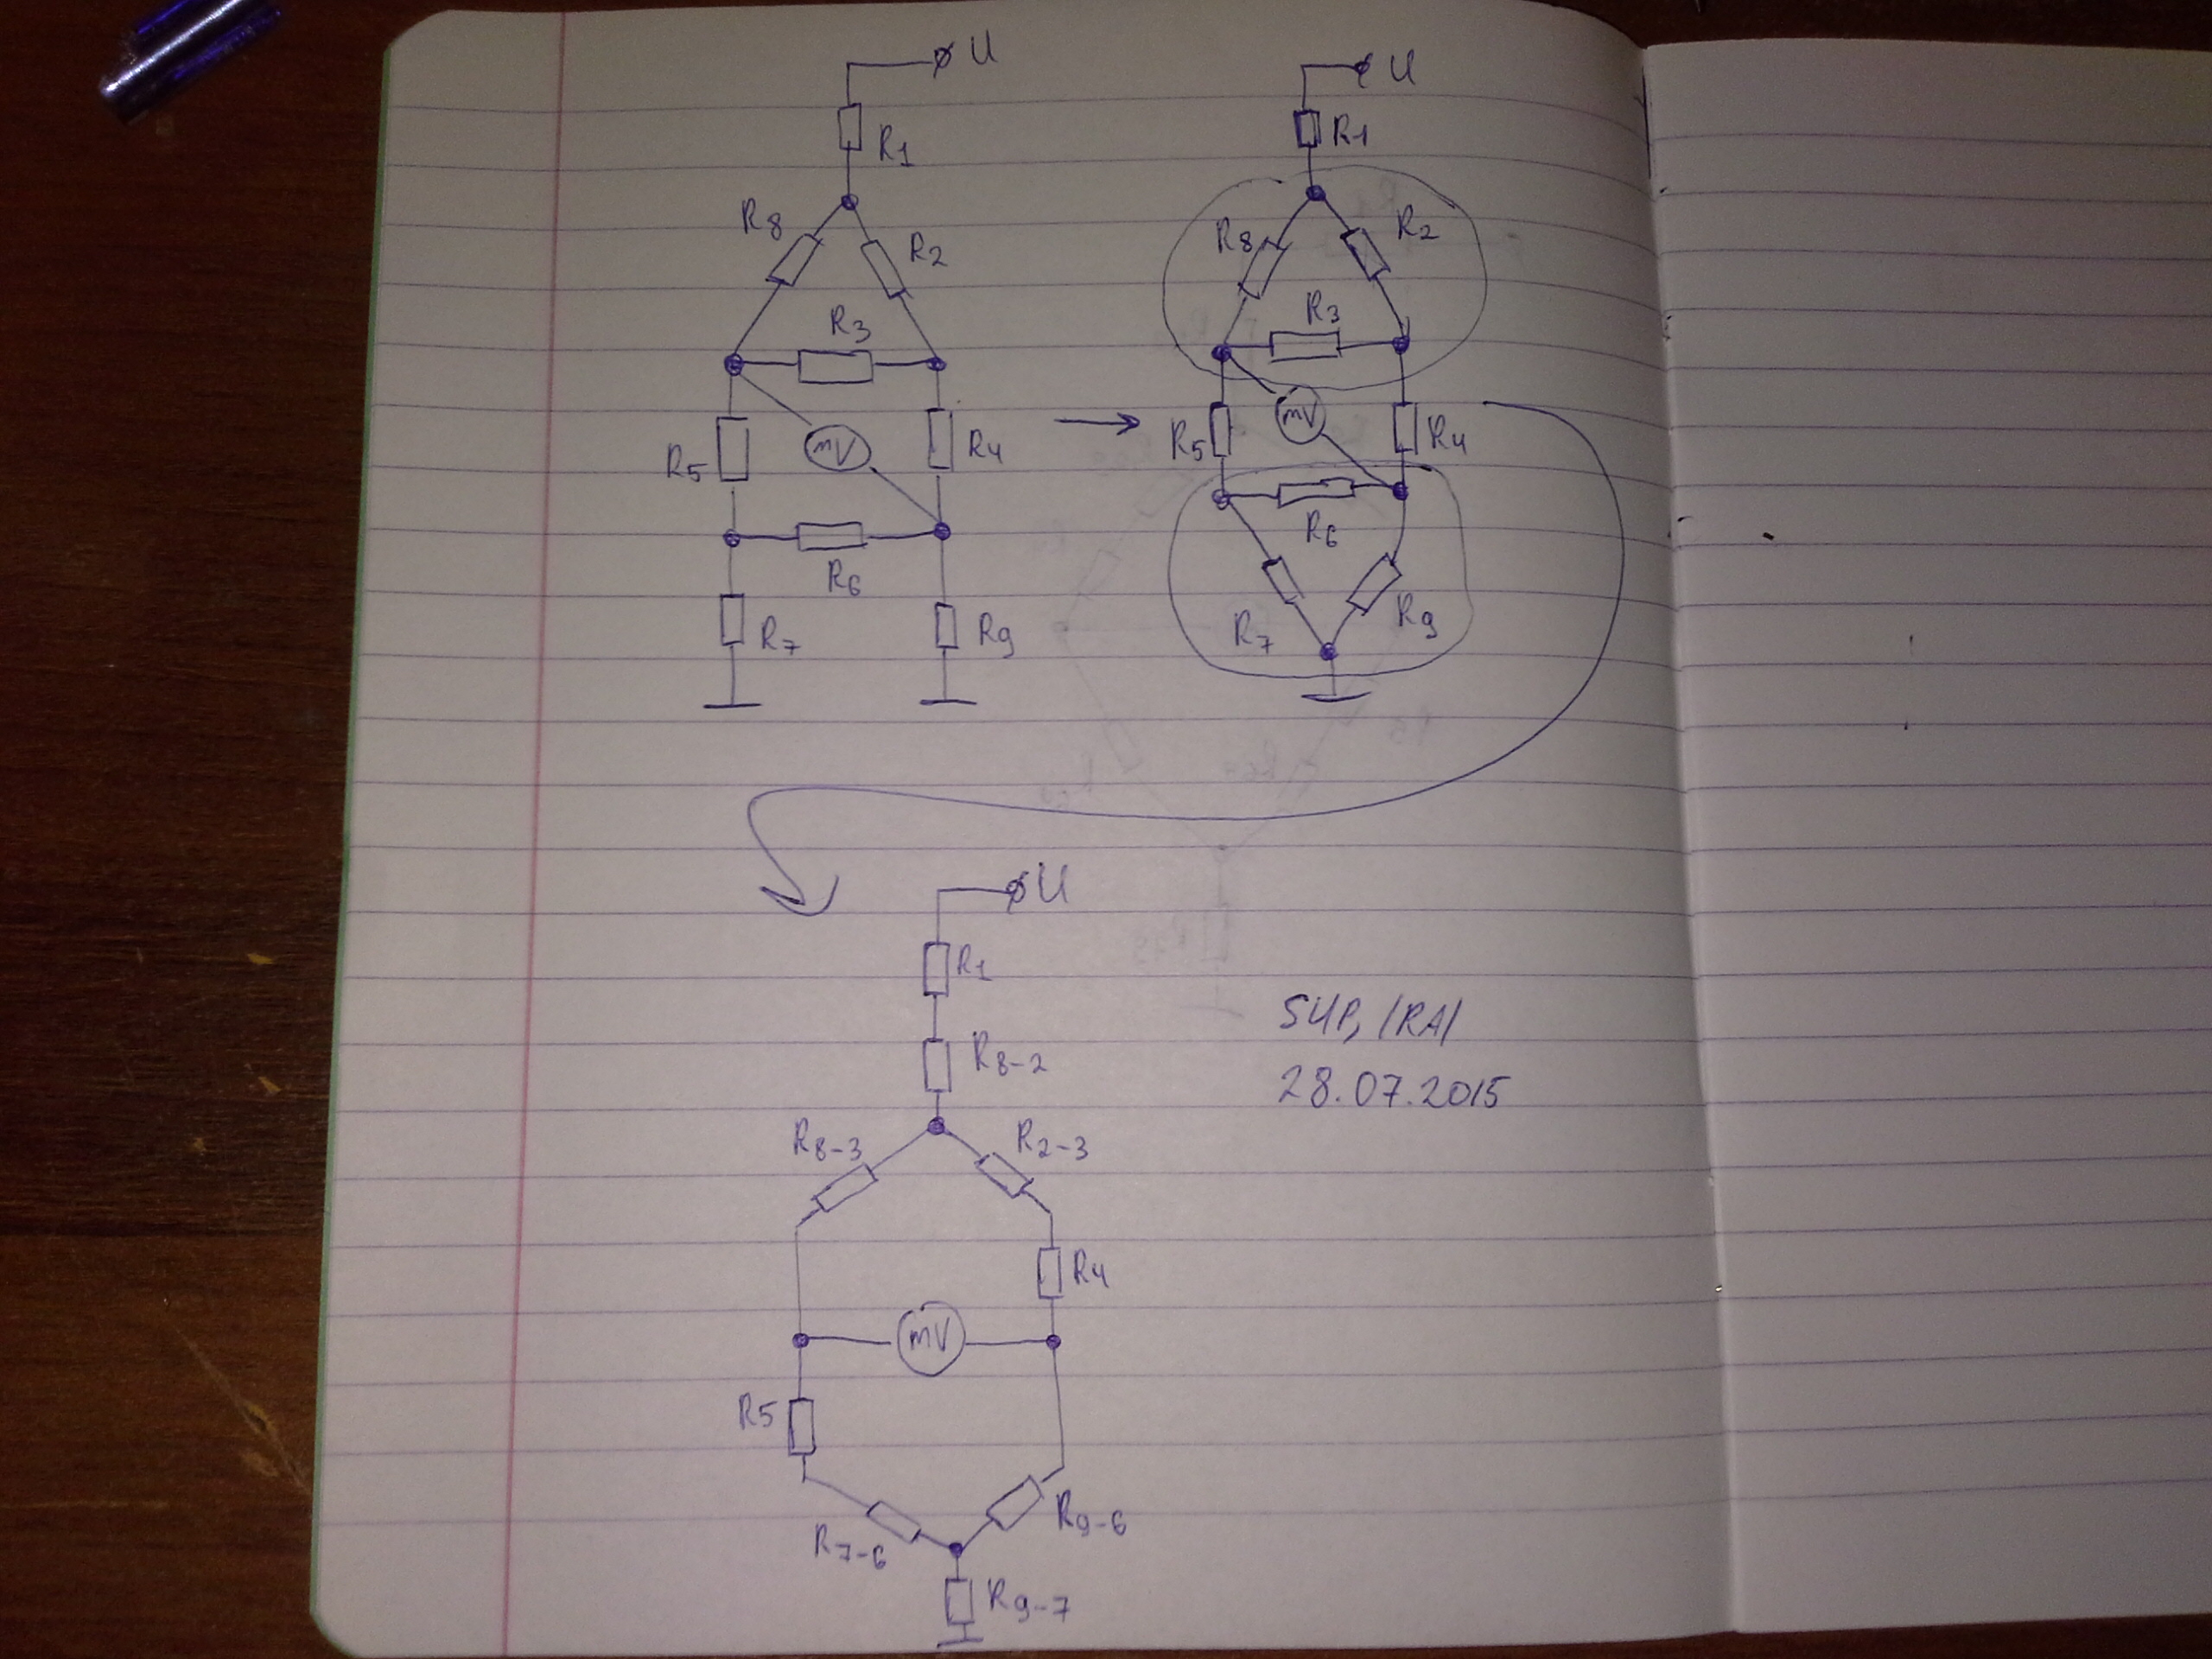 U
R1
R8
R2
R3
R5
mV
R4
R6
R7
R9
U
R1
R8
R2
R3
R5
mV
R4
R6
R7
R9
U
R1
R8-2
R8-3
R2-3
R4
mV
R5
R7-6
R9-6
R9-7
SUP, /RA/
28.07.2015